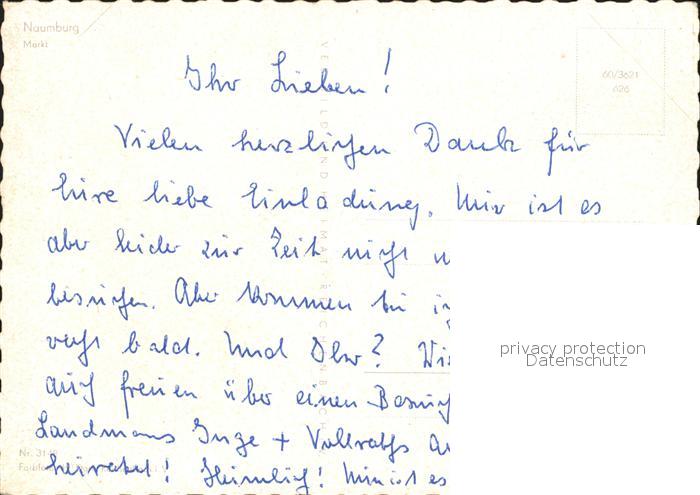 Naumburg
Markt
60/3621
626
Ihr Lieben!
Vielen herzlichen Dank für
Eure liebe Einladung. Mir ist es
aber leider zur Zeit nicht
besuchen. Aber kommen tu ich
recht bald. Und Ihr?
auch freuen über einen Besuch
Landmanns Inge + Vollraths
heiratet! Heimlich! Nun ist es
privacy protection
Datenschutz